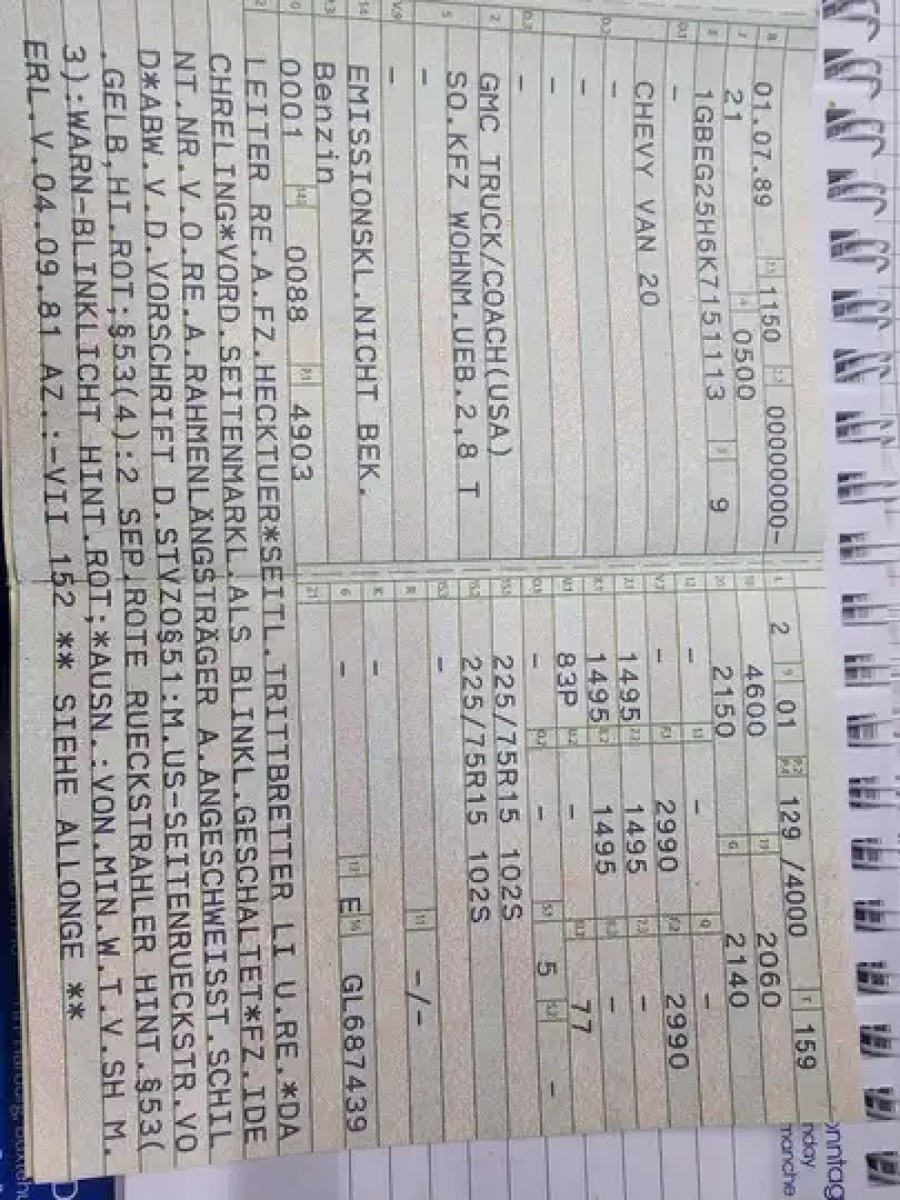 B 01.07.89 2.1 1150 2.2 00000000-
J 21 4 0500
E 1GBEG25H6K7151113 3 9
D.1 -
CHEVY VAN 20
D.2 -
-
-
D.3 -
2 GMC TRUCK/COACH(USA)
5 SO.KFZ WOHNM.UEB.2,8 T
-
V.9 -
14 EMISSIONSKL.NICHT BEK.
P.3 Benzin
10 0001 14.1 0088 P.1 4903
L 2 9 01 P.2 P.4 129 /4000 T 159
18 4600 19 2060
20 2150 G 2140
12 - 13 - Q -
V.7 - F.1 2990 F.2 2990
7.1 1495 7.2 1495 7.3 -
8.1 1495 8.2 1495 8.3 -
U.1 83P U.2 - U.3 77
O.1 - O.2 - S.1 5 S.2 -
15.1 225/75R15 102S
15.2 225/75R15 102S
15.3 -
R - 11 -/-
K -
6 - 17 E 16 GL687439
21
22 LEITER RE.A.FZ.HECKTUER*SEITL.TRITTBRETTER LI U.RE.*DA
CHRELING*VORD.SEITENMARKL.ALS BLINKL.GESCHALTET*FZ.IDE
NT.NR.V.O.RE.A.RAHMENLÄNGSTRÄGER A.ANGESCHWEISST.SCHIL
D*ABW.V.D.VORSCHRIFT D.STVZO§51:M.US-SEITENRUECKSTR.VO
.GELB,HI.ROT;§53(4):2 SEP.ROTE RUECKSTRAHLER HINT.§53(
3):WARN-BLINKLICHT HINT.ROT;*AUSN.:VON.MIN.W.T.V.SH M.
ERL.V.04.09.81 AZ.:-VII 152 ** SIEHE ALLONGE **
onntag
nday
manche